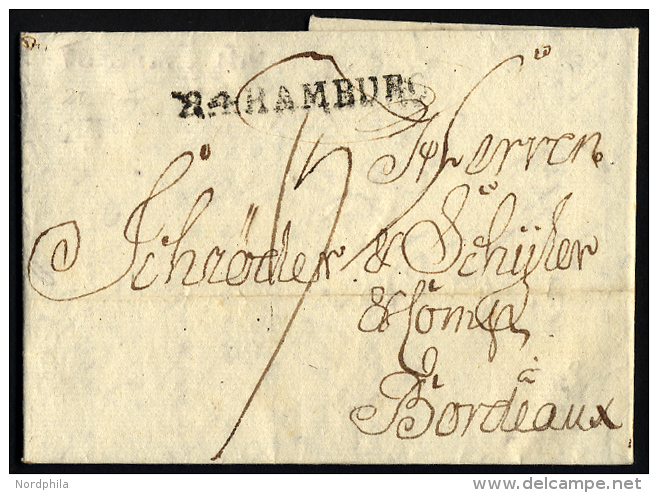 R.4.HAMBURG
Herren
Schröder & Schÿler
& Comp
à
Bordeaux
Nordphila
delcampe.net